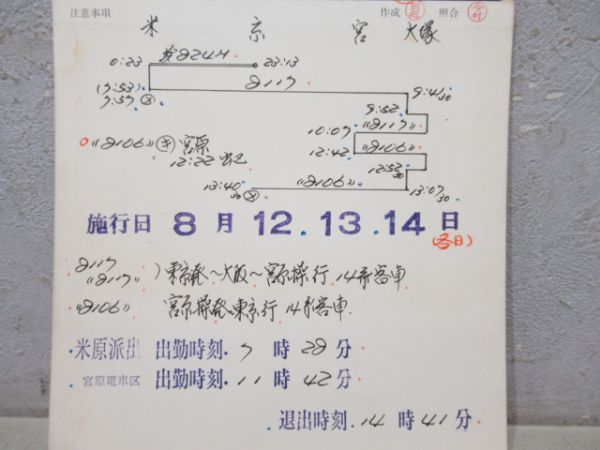 注意事項 作成 照合
米 京 宮 大塚
0:23 824M 23:13
(7:53) 7:57 8117 9:41/30
9:52
10:07 《8117》
《8106》 宮原 12:42 《8106》
12:22 出区 12:52/30
13:40/30 《8106》 13:07/30
施行日 8月 12.13.14日
(各日)
8117
《8117》 ) 東京発〜大阪〜宮原操行 14系客車
《8106》 宮原操発〜東京行 14系客車
米原派出 出勤時刻. 7 時 28 分
宮原電車区 出勤時刻. 11 時 42 分
退出時刻. 14 時 41 分.